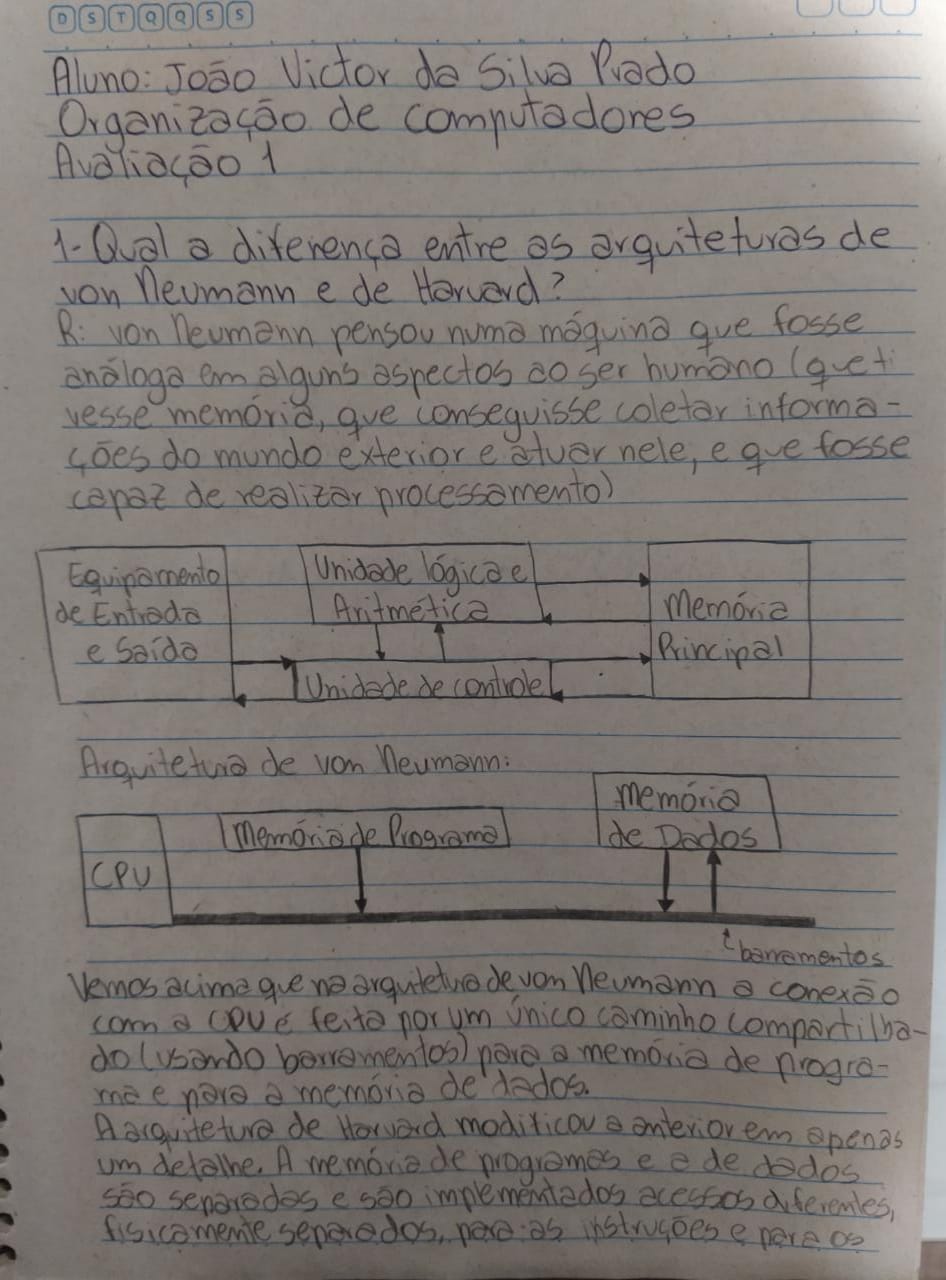 D S T Q Q S S
Aluno: João Victor da Silva Prado
Organização de computadores
Avaliação 1
1- Qual a diferença entre as arquiteturas de
von Neumann e de Harvard?
R: von Neumann pensou numa máquina que fosse
análoga em alguns aspectos ao ser humano (que ti
vesse memória, que conseguisse coletar informa-
ções do mundo exterior e atuar nele, e que fosse
capaz de realizar processamento)
Equipamento
de Entrada
e Saída
Unidade lógica e
Aritmética
Unidade de controle
Memória
Principal
Arquitetura de von Neumann:
CPU
Memória de Programa
Memória
de Dados
barramentos
Vemos acima que na arquitetura de von Neumann a conexão
com a CPU é feita por um único caminho compartilha-
do (usando barramentos) para a memória de progra-
ma e para a memória de dados.
A arquitetura de Harvard modificou a anterior em apenas
um detalhe. A memória de programas e a de dados
são separadas e são implementados acessos diferentes,
fisicamente separados, para as instruções e para os